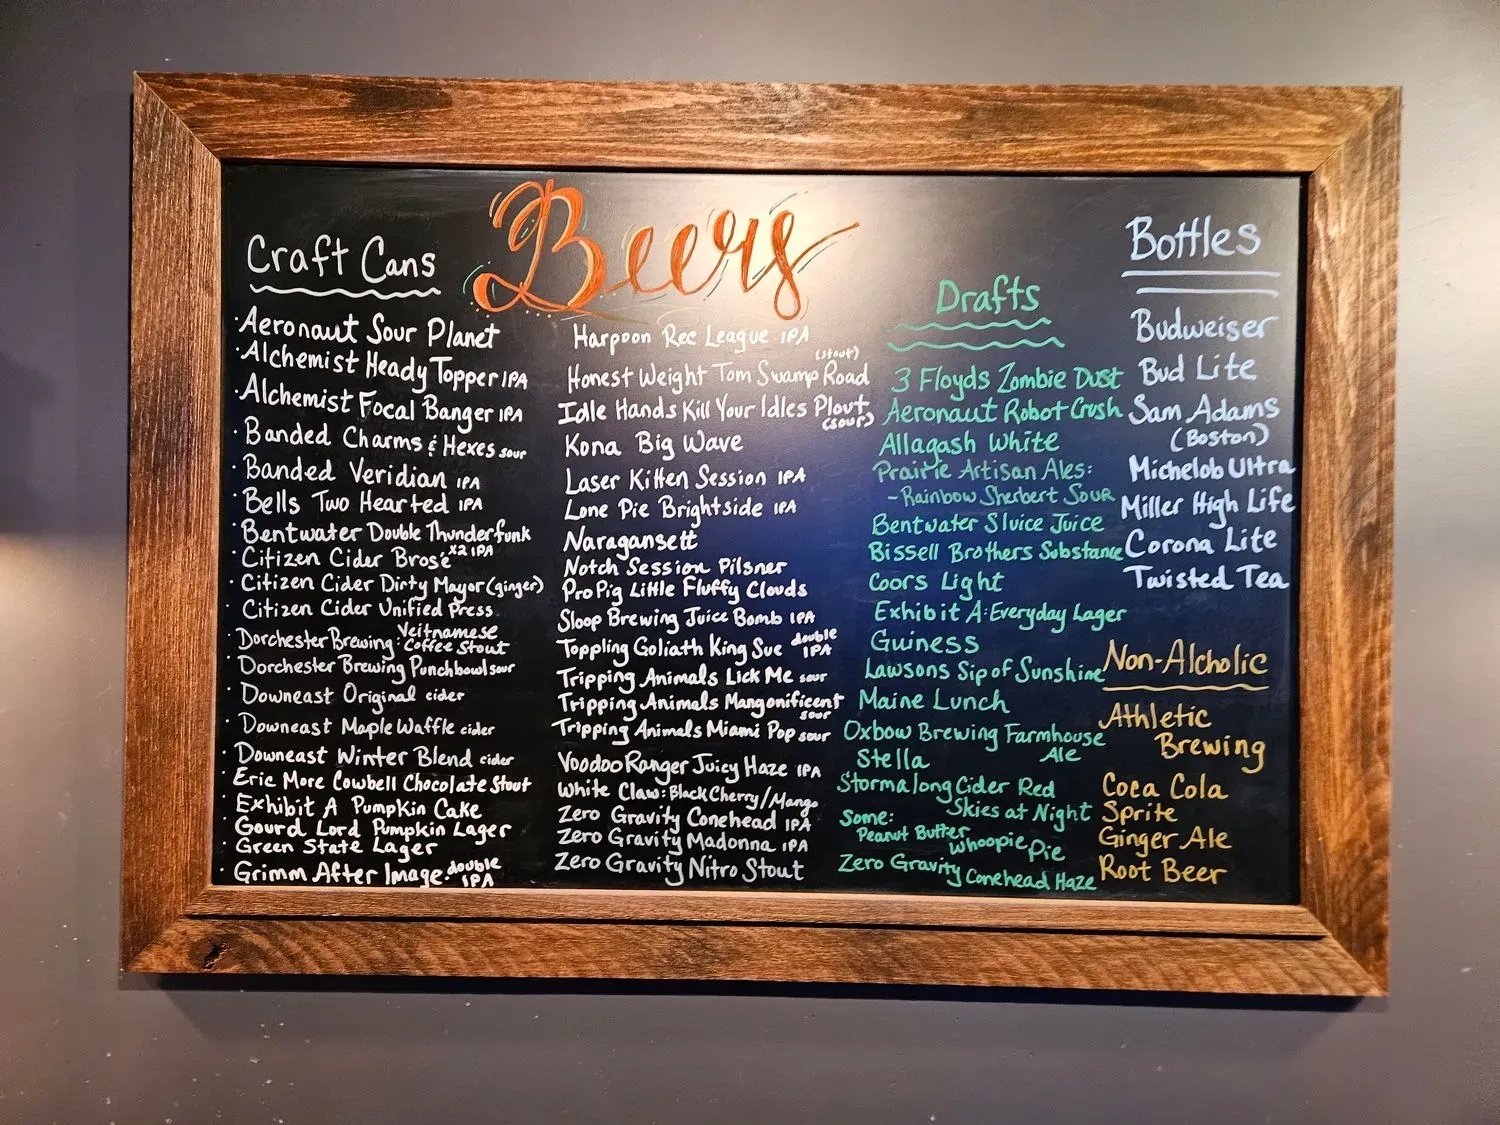 Beers
Craft Cans
Aeronaut Sour Planet
Alchemist Heady Topper IPA
Alchemist Focal Banger IPA
Banded Charms & Hexes sour
Banded Veridian IPA
Bells Two Hearted IPA
Bentwater Double Thunderfunk
x2 IPA
Citizen Cider Brosé
Citizen Cider Dirty Mayor (ginger)
Citizen Cider Unified Press
Dorchester Brewing: Veitnamese
Coffee Stout
Dorchester Brewing Punchbowl sour
Downeast Original cider
Downeast Maple Waffle cider
Downeast Winter Blend cider
Eric More Cowbell Chocolate Stout
Exhibit A Pumpkin Cake
Gourd Lord Pumpkin Lager
Green State Lager
Grimm After Image: double
IPA
Harpoon Rec League IPA
(stout)
Honest Weight Tom Swamp Road
Idle Hands Kill Your Idles Plout
(sour)
Kona Big Wave
Laser Kitten Session IPA
Lone Pie Brightside IPA
Naragansett
Notch Session Pilsner
Pro Pig Little Fluffy Clouds
Sloop Brewing Juice Bomb IPA
Toppling Goliath King Sue double
IPA
Tripping Animals Lick Me sour
Tripping Animals Mangonificent
sour
Tripping Animals Miami Pop sour
Voodoo Ranger Juicy Haze IPA
White Claw: Black Cherry/Mango
Zero Gravity Conehead IPA
Zero Gravity Madonna IPA
Zero Gravity Nitro Stout
Drafts
3 Floyds Zombie Dust
Aeronaut Robot Crush
Allagash White
Prairie Artisan Ales:
- Rainbow Sherbert Sour
Bentwater Sluice Juice
Bissell Brothers Substance
Coors Light
Exhibit A: Everyday Lager
Guiness
Lawsons Sip of Sunshine
Maine Lunch
Oxbow Brewing Farmhouse
Ale
Stella
Stormalong Cider Red
Skies at Night
Some:
Peanut Butter
Whoopie Pie
Zero Gravity Conehead Haze
Bottles
Budweiser
Bud Lite
Sam Adams
(Boston)
Michelob Ultra
Miller High Life
Corona Lite
Twisted Tea
Non-Alcholic
Athletic
Brewing
Coca Cola
Sprite
Ginger Ale
Root Beer